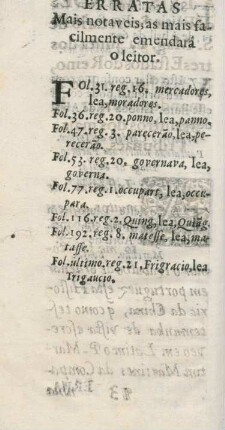 ERRATAS
Mais notaveis, as mais fa-
cilmente emendará
o leitor.
FOl. 31. reg. 16. mercadores,
lea, moradores.
Fol. 36. reg. 20. ponno, lea, panno.
Fol. 47. reg. 3. parecerão, lea, pe-
recerão.
Fol. 53. reg. 20, governava, lea,
governa.
Fol. 77. reg. 1. occupart, lea, occu-
para.
Fol. 116. reg. 2. Quing, lea, Quin̄g.
Fol. 192. reg. 8. matesse, lea, ma-
tasse.
Fol. ultimo. reg. 21, Frigracio, lea
Trigaucio.